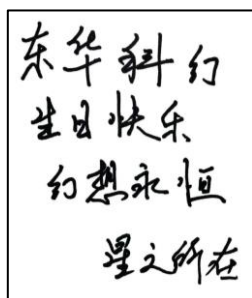 东华科幻
生日快乐
幻想永恒
星之所在